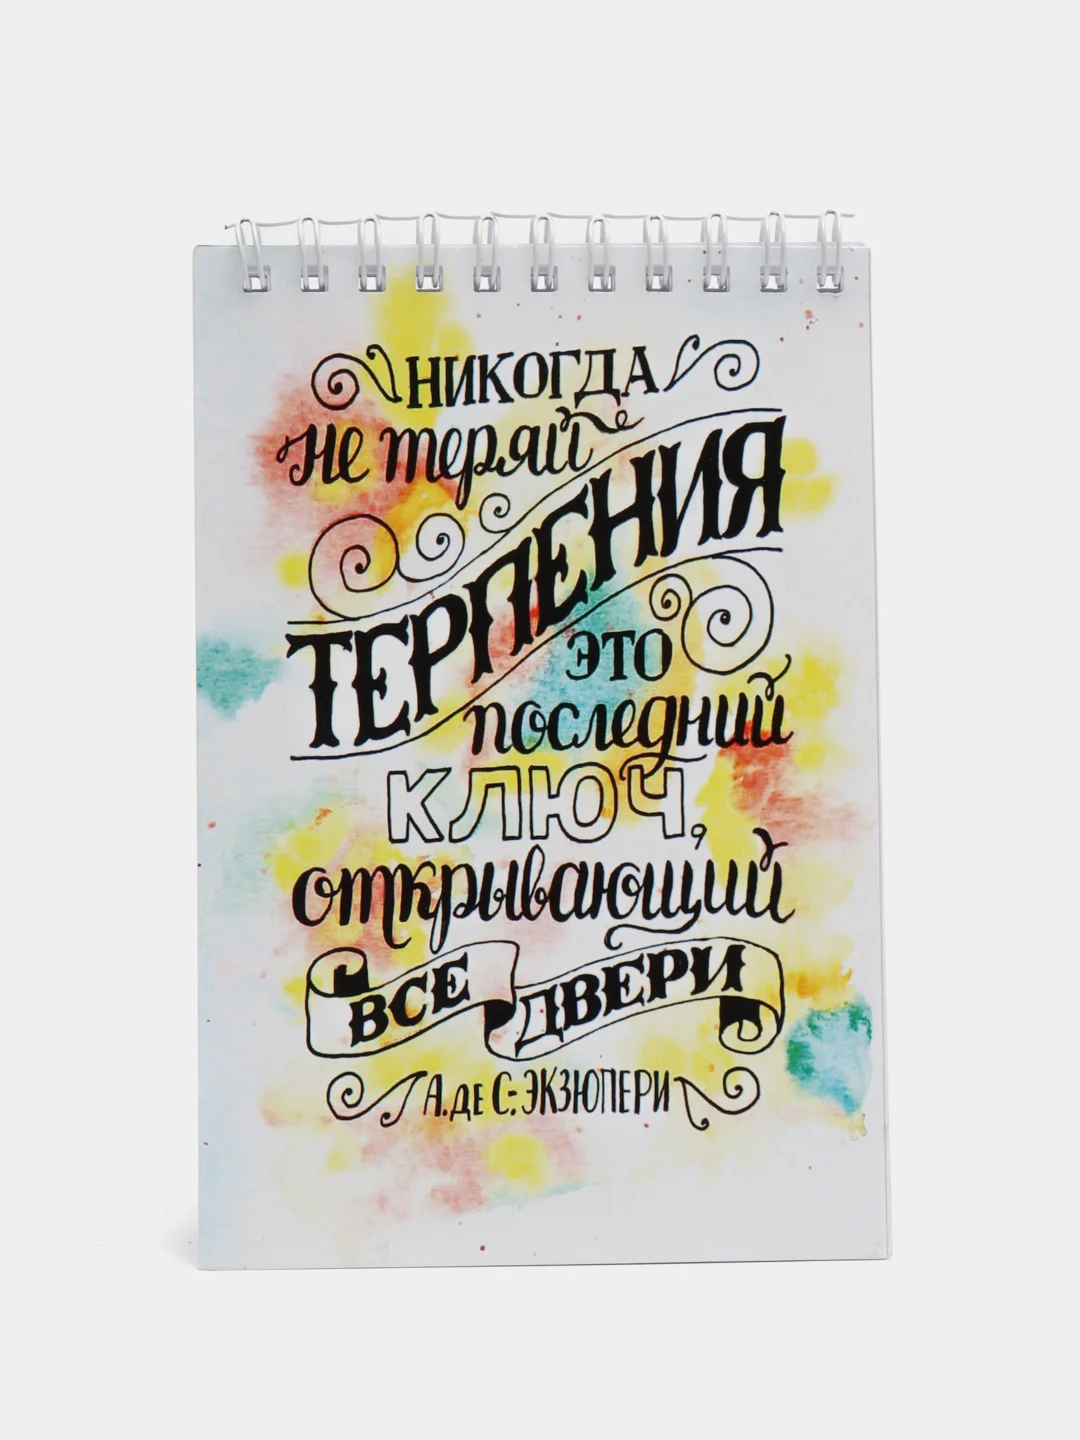 НИКОГДА
не теряй
ТЕРПЕНИЯ
ЭТО
последний
КЛЮЧ,
открывающий
ВСЕ ДВЕРИ
А. де С-ЭКЗЮПЕРИ